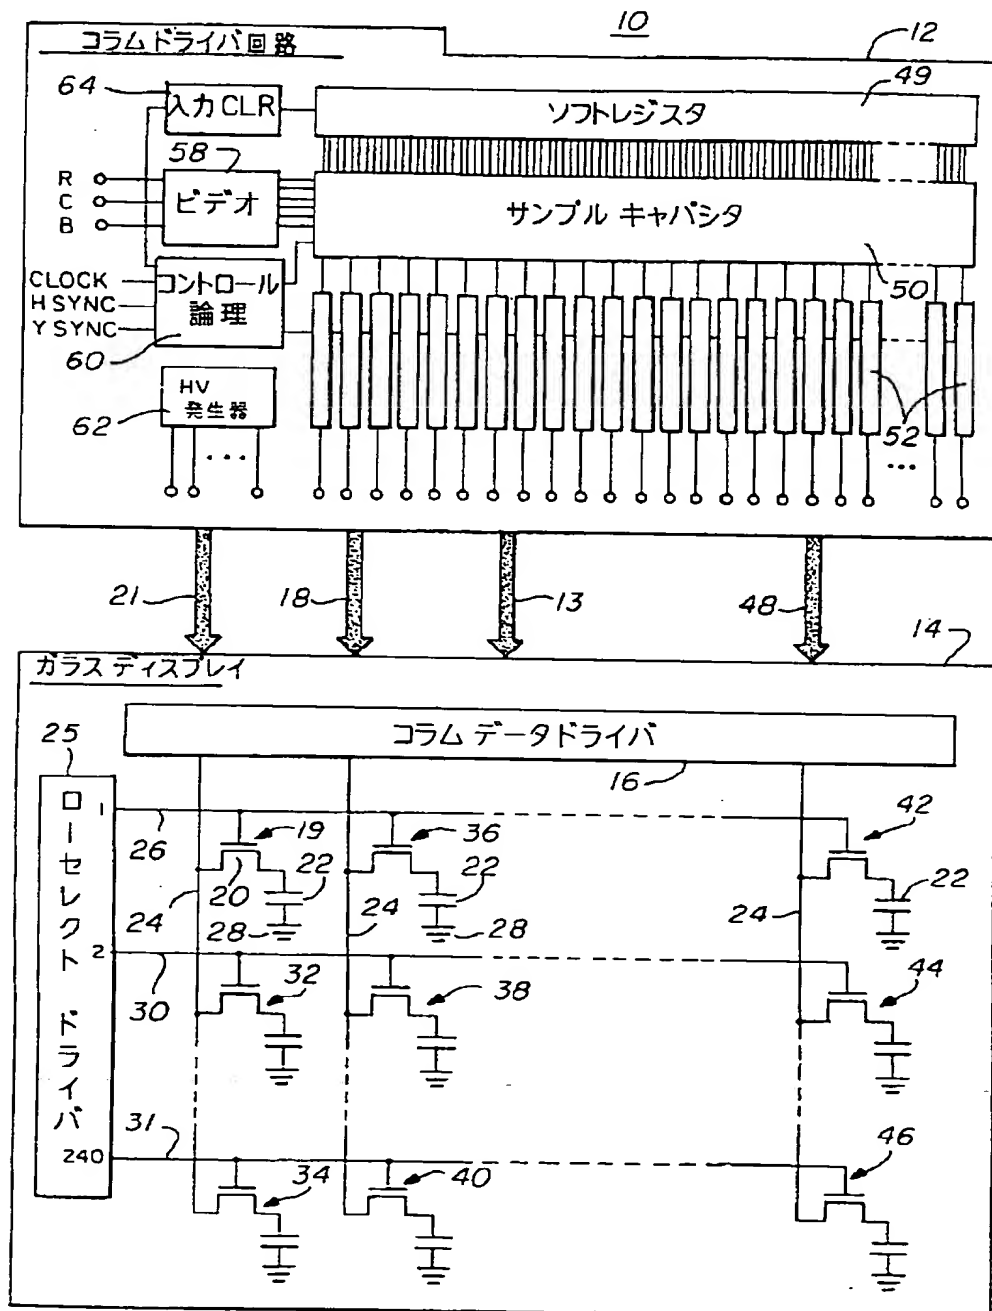 10
コラムドライバ回路
12
64
入力 CLR
49
ソフトレジスタ
58
R
C
B
ビデオ
サンプル キャパシタ
50
CLOCK
H SYNC
Y SYNC
コントロール
論理
60
HV
発生器
62
52
...
...
21
18
13
48
14
ガラスディスプレイ
25
コラム データドライバ
16
ローセレクト ドライバ
1
26
19
20
22
24
28
36
22
24
28
42
22
24
2
30
32
38
44
240
31
34
40
46